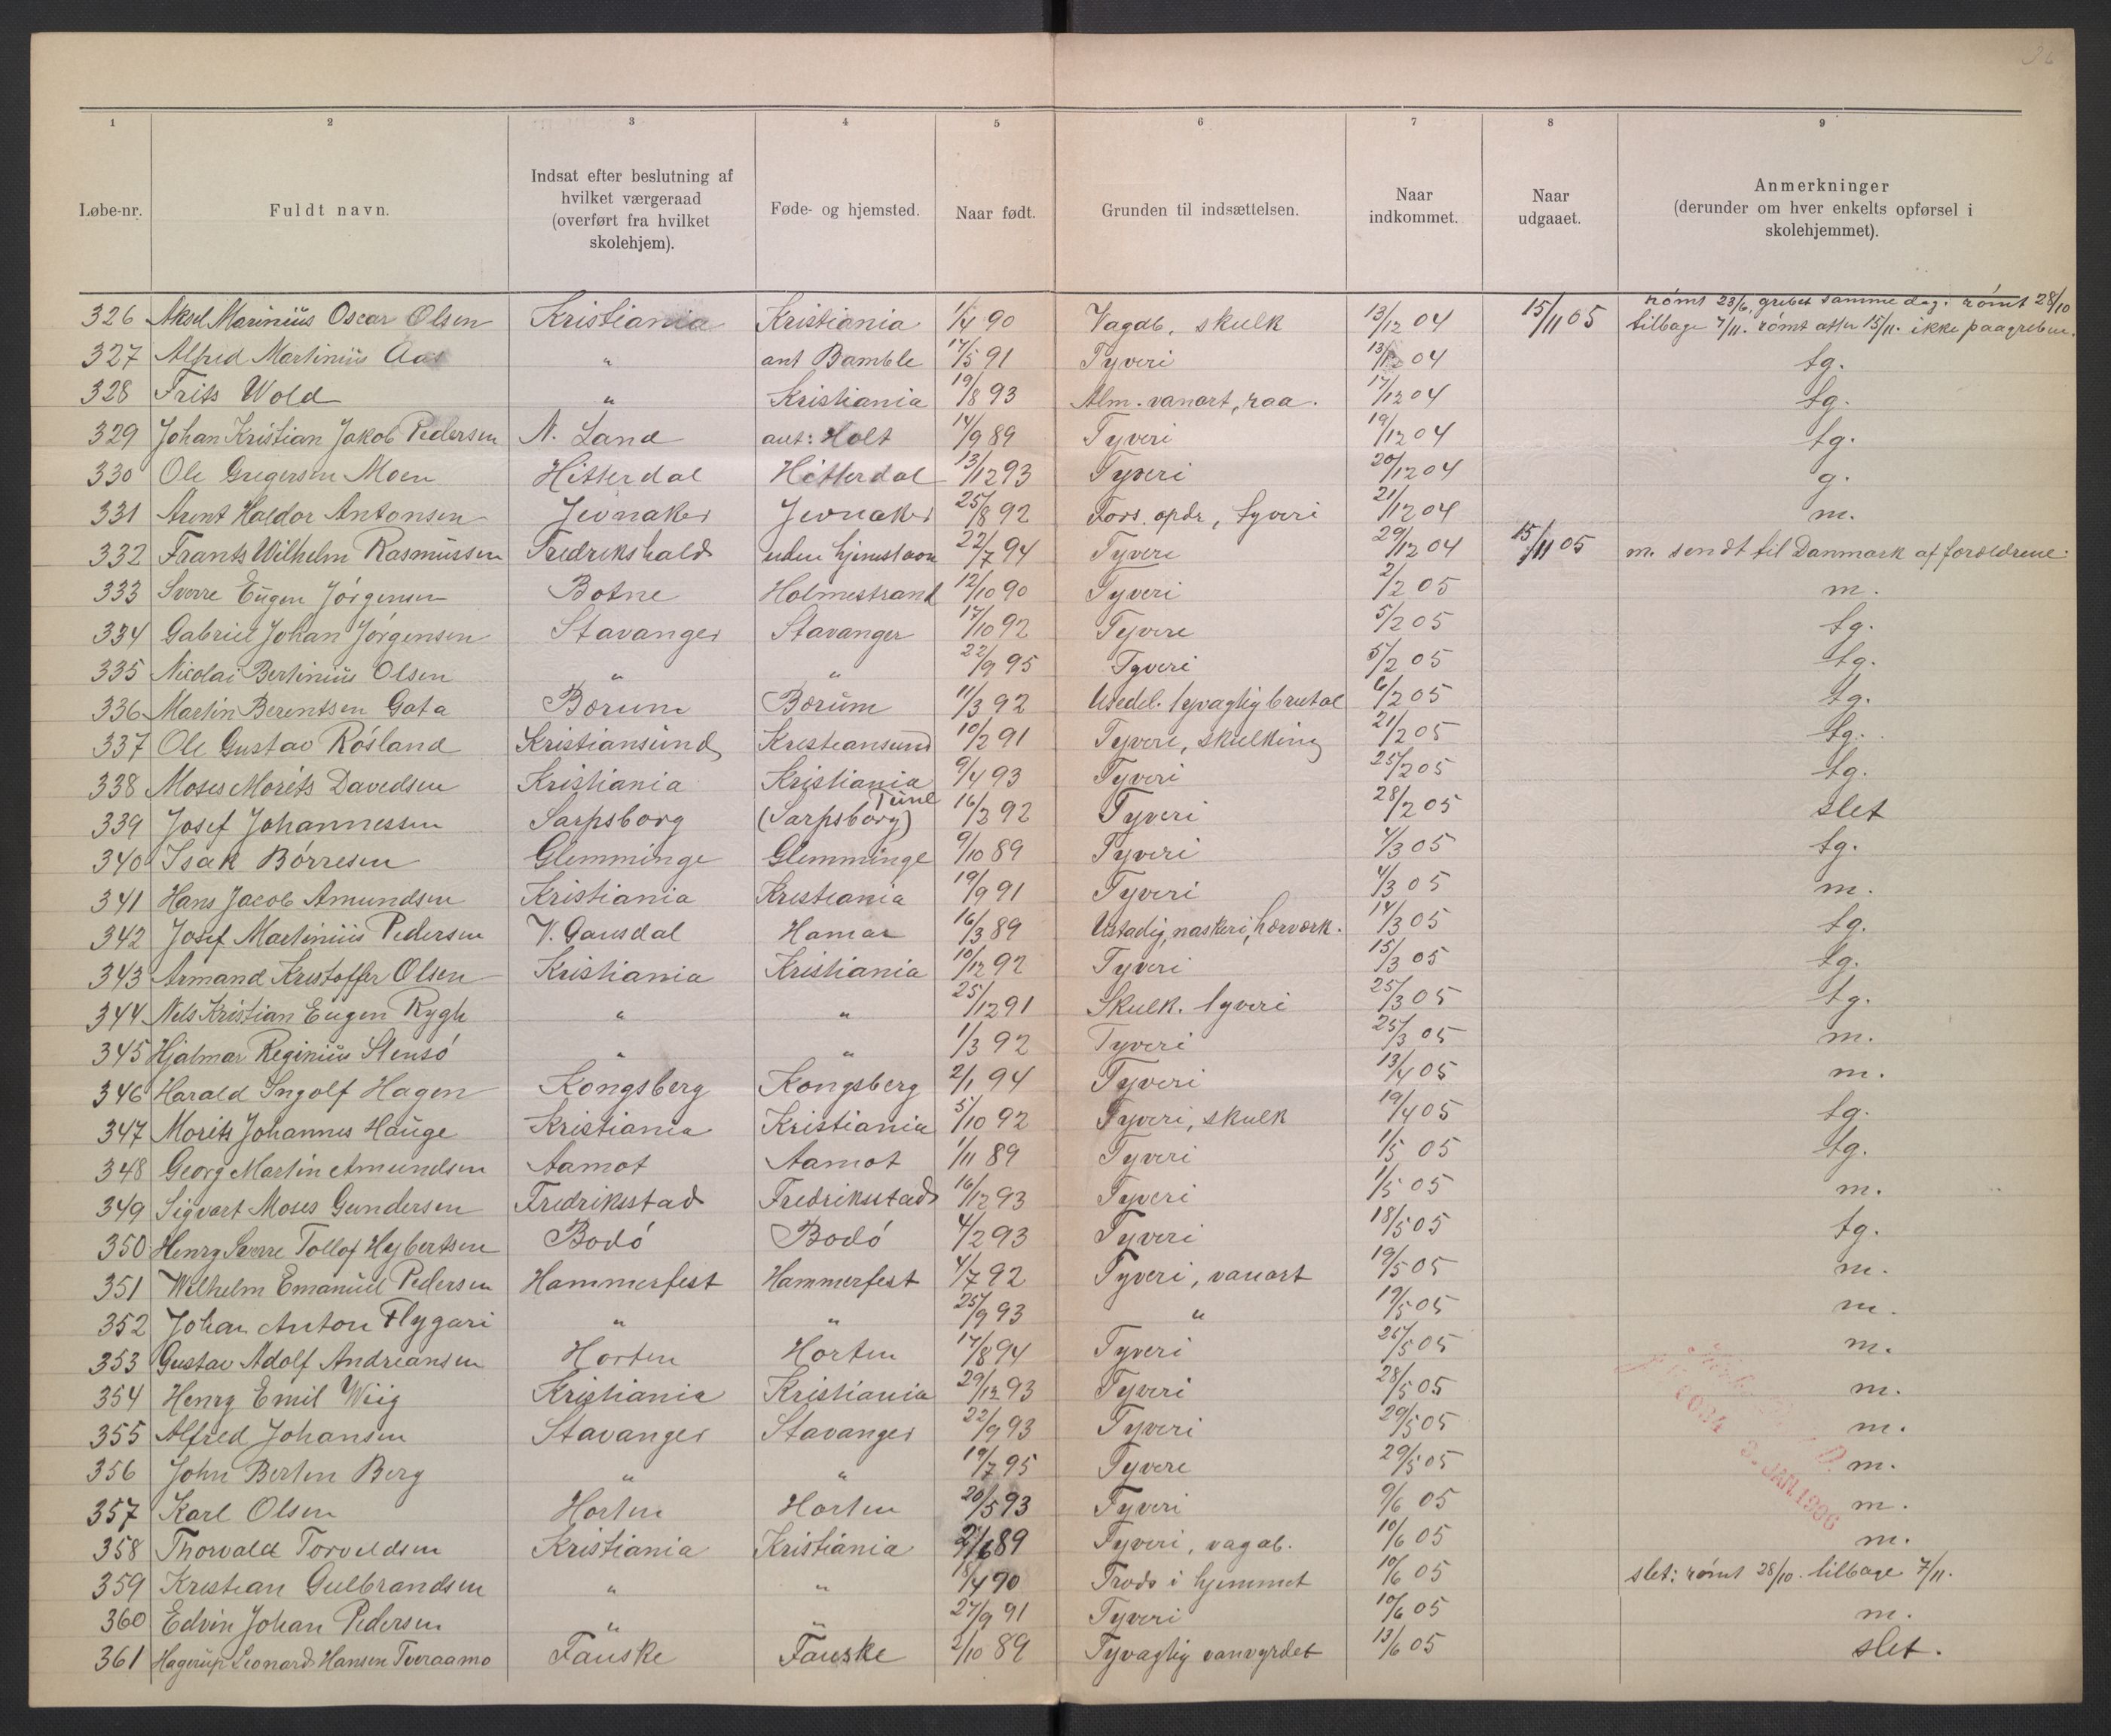 1 2 3 4 5 6 7 8 9
Løbe-nr. Fuldt navn. Indsat efter beslutning af hvilket værgeraad (overført fra hvilket skolehjem). Føde- og hjemsted. Naar født. Grunden til indsættelsen. Naar indkommet. Naar udgaaet. Anmerkninger (derunder om hver enkelts opførsel i skolehjemmet).
326 Aksel Marinius Oscar Olsen Kristiania Kristiania 1/4 90 Vagab, skulk 13/12 04 15/11 05 rømt 23/6, grebet samme dag. rømt 28/10
tilbage 7/11. rømt atter 15/11. ikke paagreben.
327 Alfred Martinius Aas " ant Bamble 17/5 91 Tyveri 13/12 04 tg.
328 Frits Wold " Kristiania 19/8 93 Alm. vanart, raa. 17/12 04 tg.
329 Johan Kristian Jakob Pedersen N. Land ant: Holt 14/9 89 Tyveri 19/12 04 tg.
330 Ole Gregersen Moen Hitterdal Hitterdal 13/12 93 Tyveri 20/12 04 g.
331 Arent Haldor Antonsen Jevnaker Jevnaker 25/8 92 Fors. opdr, tyveri 21/12 04 m.
332 Frants Wilhelm Rasmussen Fredrikshald uden hjemstavn 22/7 94 Tyveri 29/12 04 15/11 05 m. sendt til Danmark af forældrene.
333 Sverre Eugen Jørgensen Botne Holmestrand 12/10 90 Tyveri 2/2 05 m.
334 Gabriel Johan Jørgensen Stavanger Stavanger 17/10 92 Tyveri 5/2 05 tg.
335 Nicolai Bertinius Olsen " " 22/9 95 Tyveri 5/2 05 tg.
336 Martin Berentsen Gata Bærum Bærum 11/3 92 Usedel. tyvagtig brutal 6/2 05 tg.
337 Ole Gustav Røsland Kristiansund Kristiansund 10/2 91 Tyveri, skulking 21/2 05 tg.
338 Moses Morits Davidsen Kristiania Kristiania 9/4 93 Tyveri 25/2 05 tg.
339 Josef Johannessen Sarpsborg Tune (Sarpsborg) 16/3 92 Tyveri 28/2 05 slet
340 Isak Børresen Glemminge Glemminge 9/10 89 Tyveri 4/3 05 tg.
341 Hans Jacob Amundsen Kristiania Kristiania 19/9 91 Tyveri 4/3 05 m.
342 Josef Martinius Pedersen V. Gausdal Hamar 16/3 89 Ustadig, naskeri, hærværk. 14/3 05 tg.
343 Armand Kristoffer Olsen Kristiania Kristiania 10/12 92 Tyveri 15/3 05 tg.
344 Nels Kristian Eugen Rygh " " 25/12 91 Skulk. tyveri 25/3 05 tg.
345 Hjalmar Reginius Stensø " " 1/3 92 Tyveri 25/3 05 m.
346 Harald Ingolf Hagen Kongsberg Kongsberg 2/1 94 Tyveri 13/4 05 m.
347 Morits Johannes Hauge Kristiania Kristiania 5/10 92 Tyveri, skulk 19/4 05 tg.
348 Georg Martin Amundsen Aamot Aamot 1/11 89 Tyveri 1/5 05 tg.
349 Sigvart Moses Gundersen Fredriksstad Fredriksstad 16/12 93 Tyveri 1/5 05 m.
350 Henry Sverre Tollof Hybertsen Bodø Bodø 4/2 93 Tyveri 18/5 05 tg.
351 Wilhelm Emanuel Pedersen Hammerfest Hammerfest 4/7 92 Tyveri, vanart 19/5 05 m.
352 Johan Anton Flygari " " 25/9 93 " 19/5 05 m.
353 Gustav Adolf Andreansen Horten Horten 17/8 94 Tyveri 25/5 05 m.
354 Henry Emil Wiig Kristiania Kristiania 29/12 93 Tyveri 28/5 05 m.
355 Alfred Johansen Stavanger Stavanger 22/9 93 Tyveri 29/5 05 m.
356 John Berten Berg " " 19/7 95 Tyveri 29/5 05 m.
357 Karl Olsen Horten Horten 20/5 93 Tyveri 9/6 05 m.
358 Thorvald Torvaldsen Kristiania Kristiania 89 Tyveri, vagab. 10/6 05 m.
359 Kristian Gulbrandsen " " 18/4 90 Trods i hjemmet 10/6 05 slet: rømt 28/10. tilbage 7/11.
360 Edvin Johan Pedersen " " 27/9 91 Tyveri 10/6 05 m.
361 Hagerup Leonard Hansen Tveraamo Fauske Fauske 2/10 89 Tyvagtig vanvyrdet 13/6 05 slet.
3. JAN. 1906